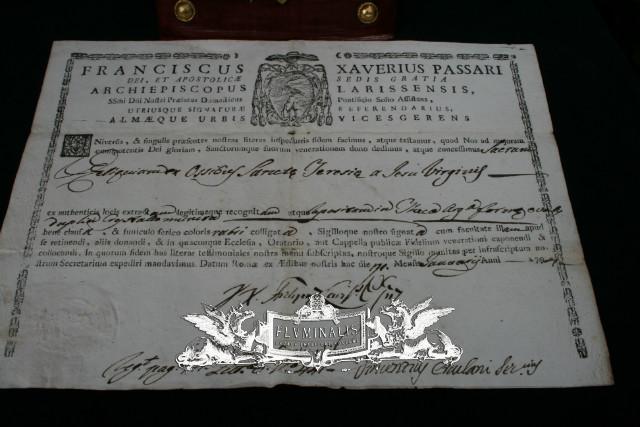 FRANCISCUS XAVERIUS PASSARI
DEI, ET APOSTOLICÆ SEDIS GRATIA
ARCHIEPISCOPUS LARISSENSIS,
SSmi Dni Nostri Prælatus Domesticus Pontificio Solio Assistens,
UTRIUSQUE SIGNATURÆ REFERENDARIUS,
ALMÆQUE URBIS VICESGERENS
UNiversis, & singulis præsentes nostras literas inspecturis fidem facimus, atque testamur, quod Nos ad majorem
omnipotentis Dei gloriam, Sanctorumque suorum venerationem dono dedimus, atque concessimus Sacram
ex Ossibus Sanctæ Teresiæ a Jesu Virginis
ex authenticis locis extractam legitimeque recognitam atque reposuimus in Theca
bene clausa, & funiculo serico coloris rubri colligata, Sigilloque nostro signata cum facultate apud
se retinendi, aliis donandi, & in quacunque Ecclesia, Oratorio, aut Cappella publicæ Fidelium venerationi exponendi &
collocandi. In quorum fidem has literas testimoniales nostra manu subscriptas, nostroque Sigillo munitas per infrascriptum no-
strum Secretarium expediri mandavimus. Datum Romæ ex Ædibus nostris hac die Mensis Januarii Anni
FLUMINALIS